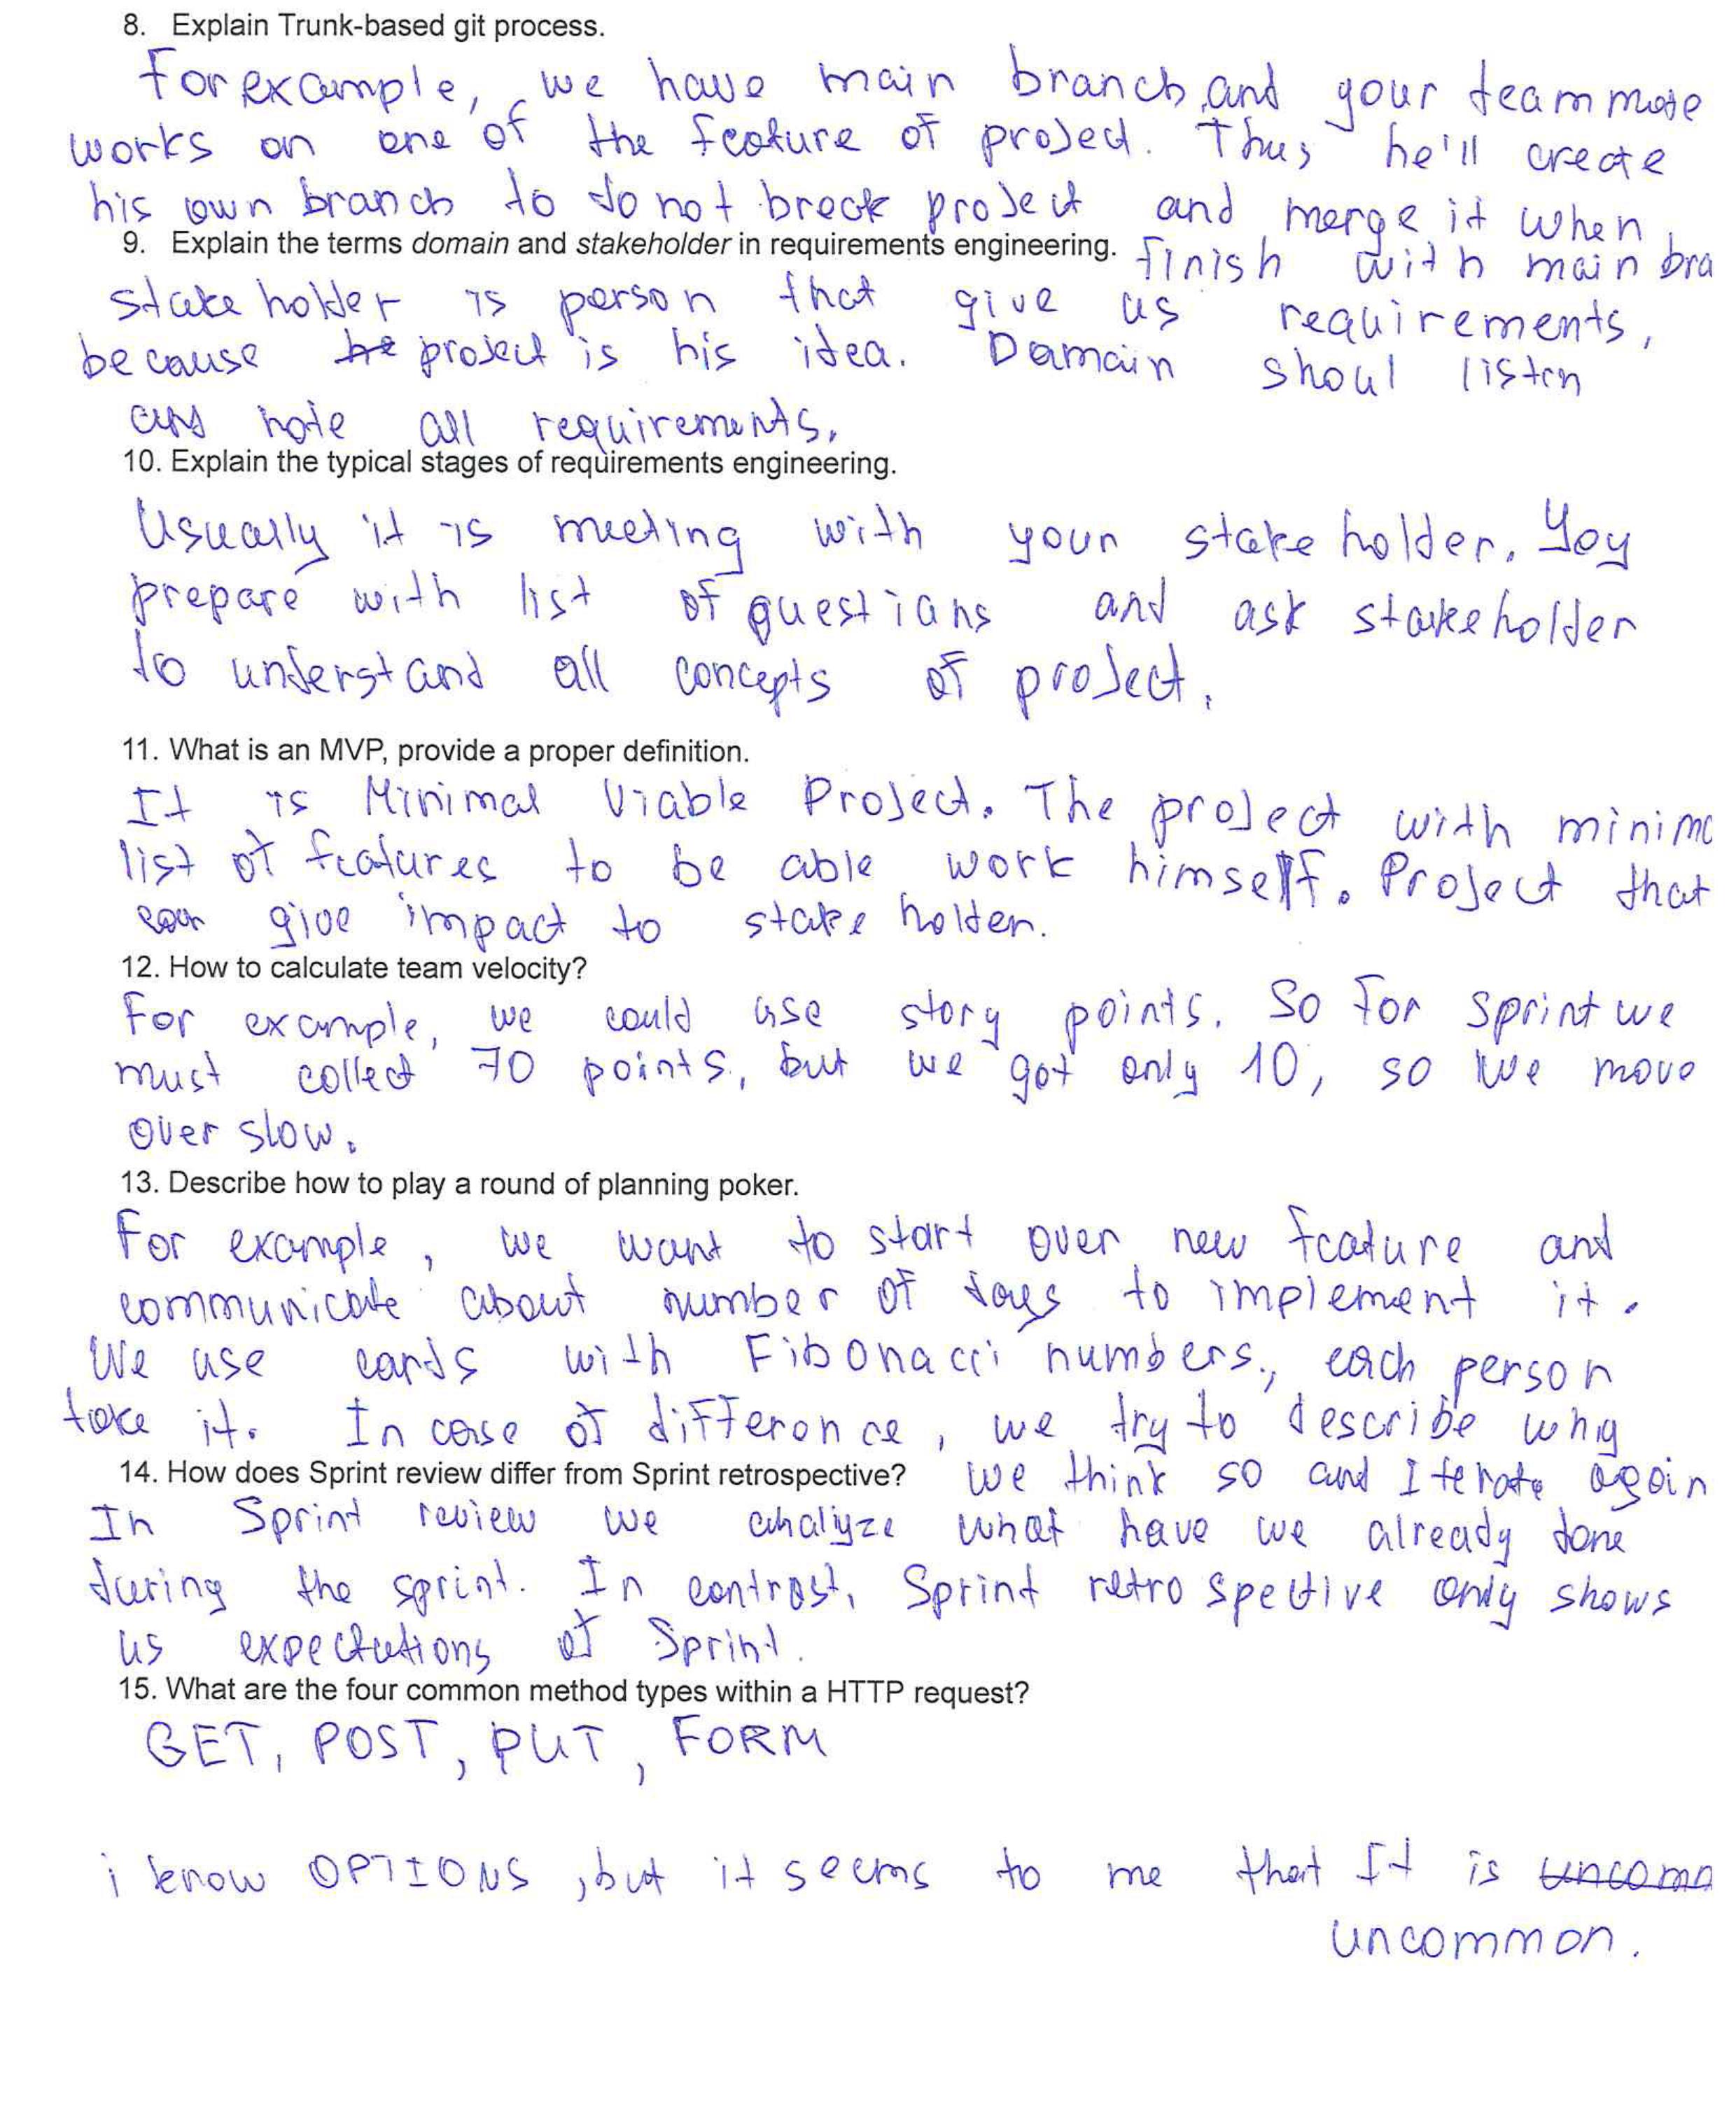 8. Explain Trunk-based git process.
For example, we have main branch, and your teammate
works on one of the feature of project. Thus he'll create
his own branch to do not break project and merge it when
finish with main bra
9. Explain the terms domain and stakeholder in requirements engineering.
stakeholder is person that give us requirements,
because he project is his idea. Domain shoul listen
and note all requirements.
10. Explain the typical stages of requirements engineering.
Usually it is meeting with your stakeholder. Yoy
prepare with list of questians and ask stakeholder
to understand all concepts of project.
11. What is an MVP, provide a proper definition.
It is Minimal Viable Project. The project with minima
list of features to be able work himself. Project that
can give impact to stakeholder.
12. How to calculate team velocity?
For example, we could use story points. So for sprint we
must collect 70 points, but we got only 10, so we move
over slow.
13. Describe how to play a round of planning poker.
For example, we want to start over new feature and
communicate about number of days to implement it.
We use cards with Fibonacci numbers., each person
take it. In case of difference, we try to describe why
we think so and Iterate again
14. How does Sprint review differ from Sprint retrospective?
In Sprint review we analiyze what have we already done
during the sprint. In contrast, Sprint retrospective only shows
us expectations of Sprint.
15. What are the four common method types within a HTTP request?
GET, POST, PUT, FORM
i know OPTIONS, but it seems to me that It is uncomm
uncommon.